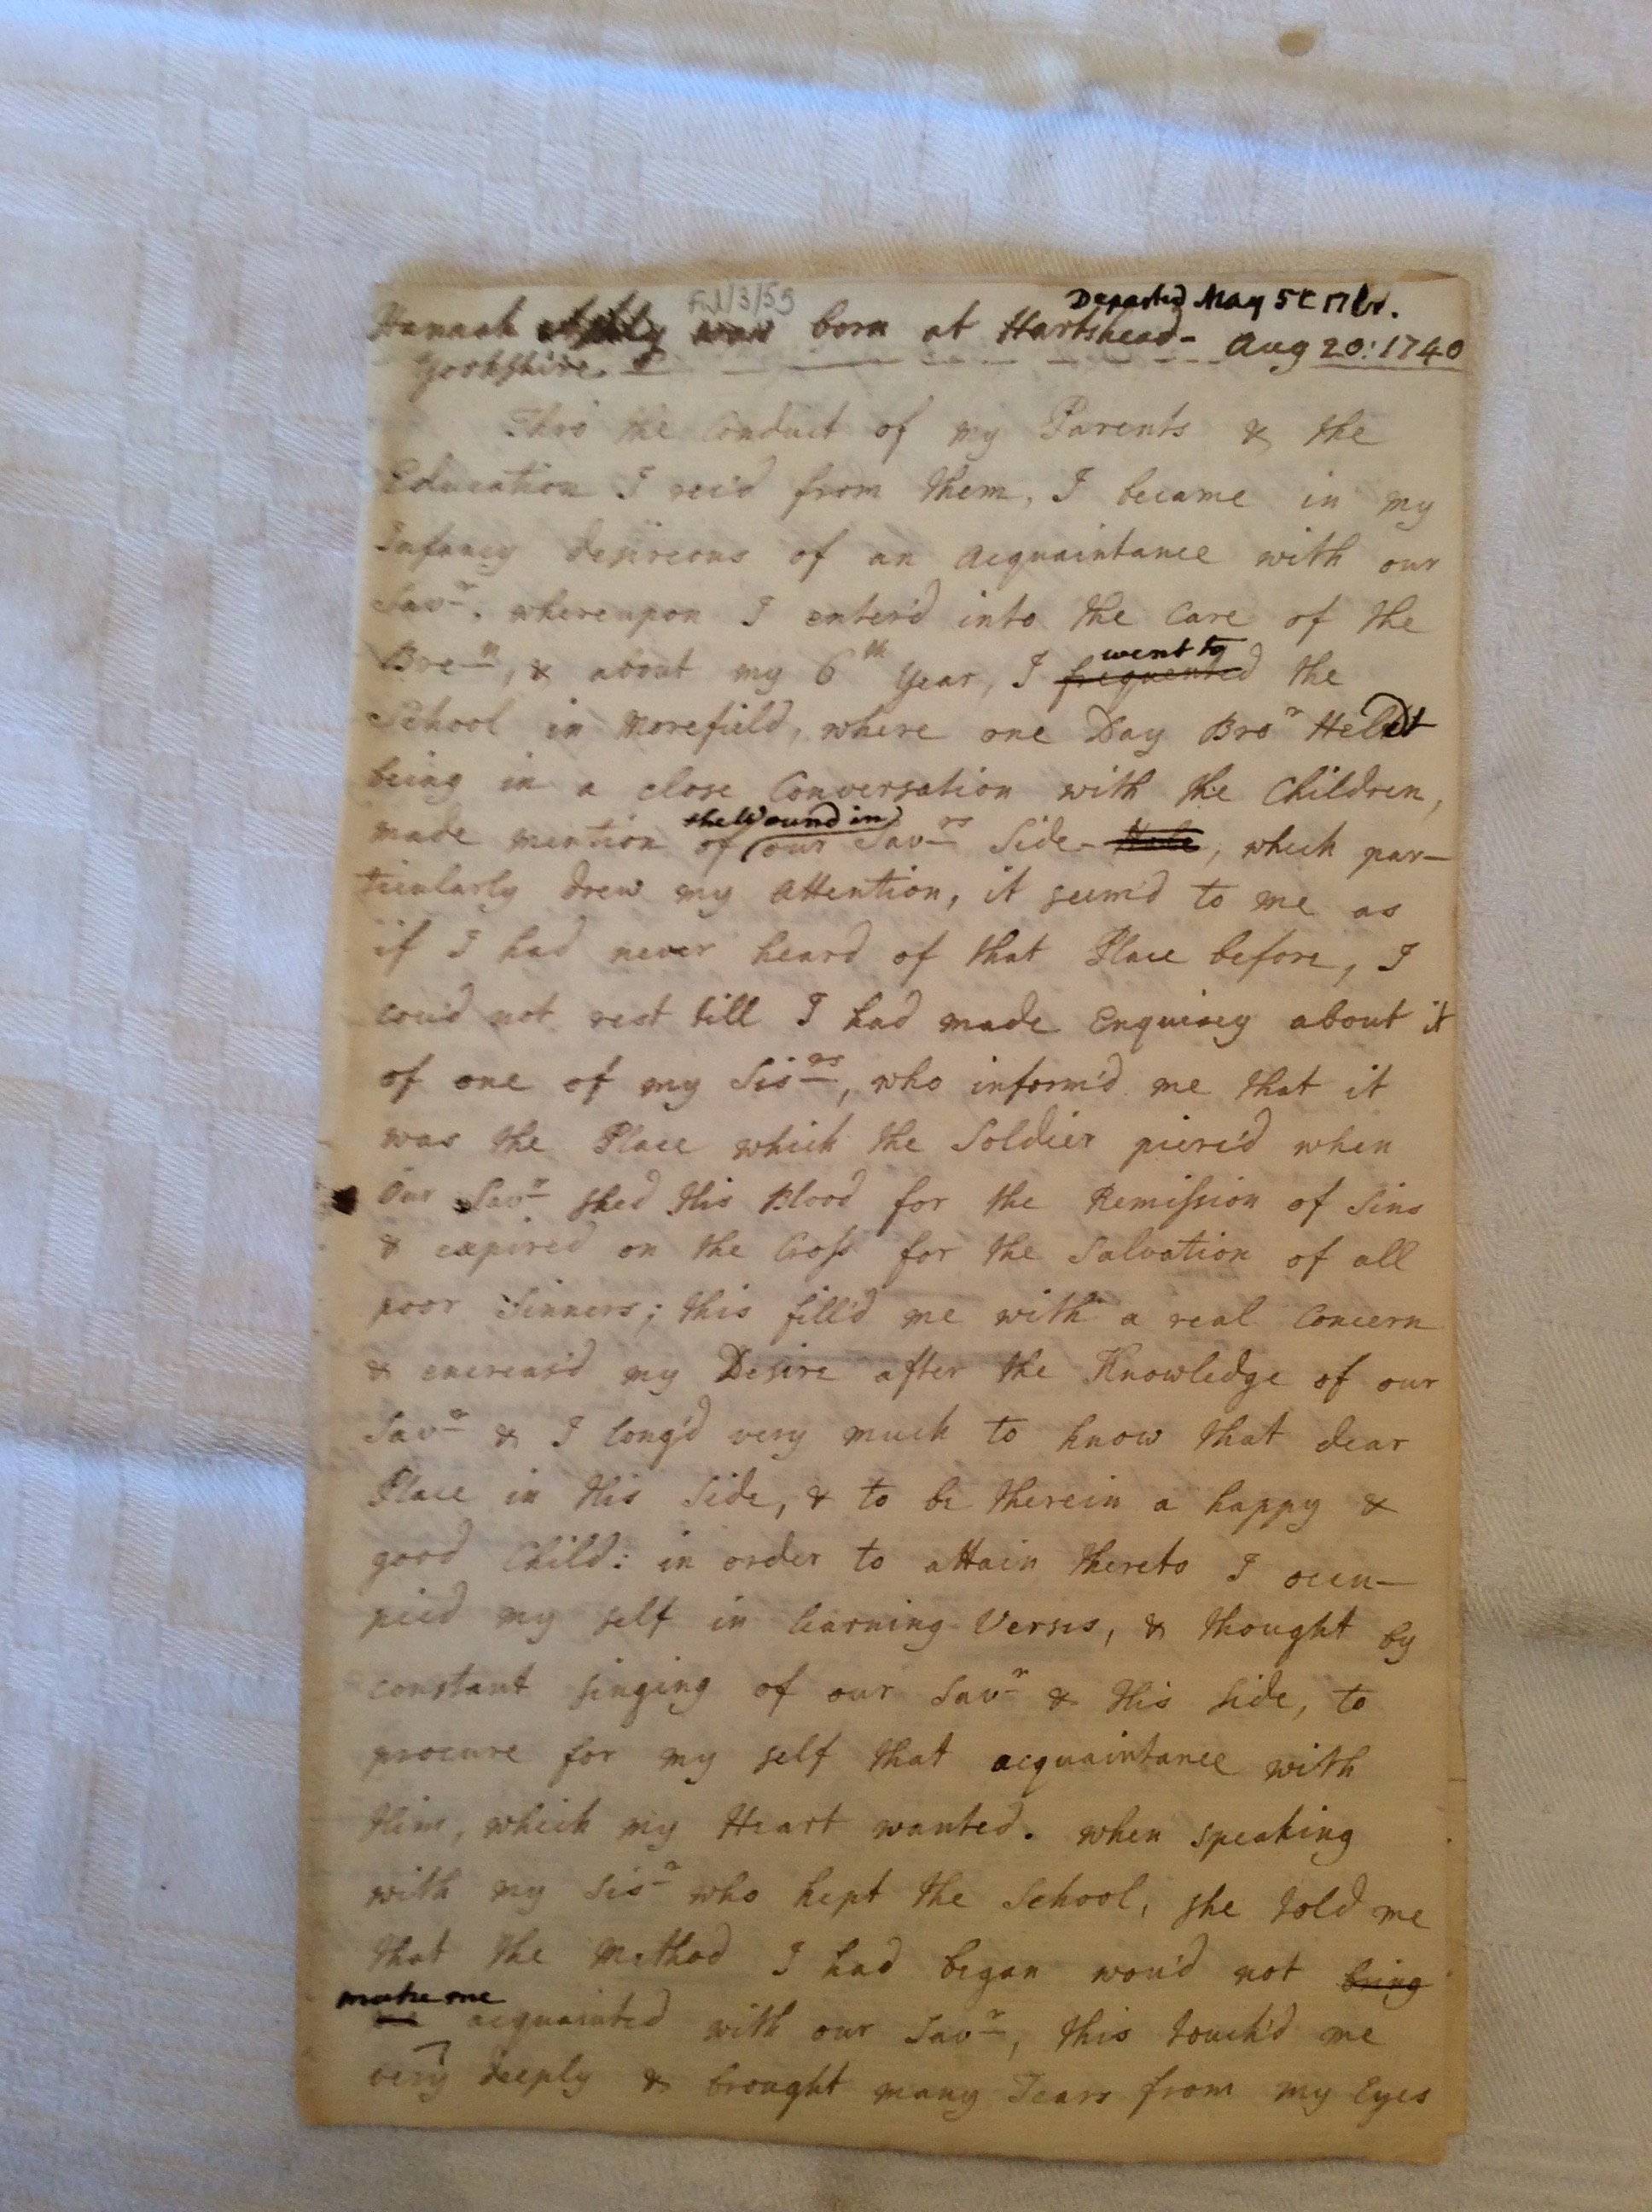 Departed May 5t
Hannah was born at Hartshead - Aug 20: 1740
Yorkshire.
Thro the Conduct of my Parents & the
Education I rec'd from them, I became in my
Infancy desireous of an Acquaintance with our
Savr. whereupon I enter'd into the Care of the
Bren, & about my 6th Year, I frequented the
went to
School in Morefield, where one Day Bror
being in a close Conversation with the Children,
the Wound in
made mention of our Savrs Side-Hole, which par-
ticularly drew my Attention, it seem'd to me as
if I had never heard of that Place before, I
cou'd not rest till I had made Enquirey about it
of one of my Sisrs, who inform'd me that it
was the Place which the Soldier pierc'd when
Our Savr shed His Blood for the Remission of Sins
& expired on the Cross for the Salvation of all
poor Sinners; this fill'd me with a real Concern
& encreas'd my Desire after the Knowledge of our
Savr & I long'd very much to know that dear
Place in His Side, & to be therein a happy &
good Child: in order to attain thereto I occu-
pied my self in learning Verses, & thought by
constant singing of our Savr & His Side, to
procure for my self that acquaintance with
Him, which my Heart wanted. when speaking
with my Sisr who kept the School, she told me
that the Method I had began wou'd not bring
make me
me acquainted with our Savr, this touch'd me
very deeply & brought many Tears from my Eyes